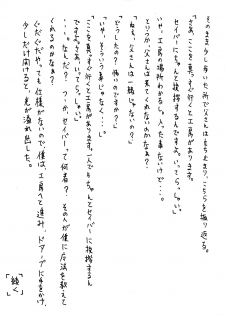 そのまま少し歩いた所で父さんは立ち止まり、こちらを振り返る。
「さあ、ここを真っすぐ行くと工房があります。
セイバーにちゃんと挨拶するんですよ。いってらっしゃい。」
工房の場所わかるし、入った事ないけど・・・。
というか父さんは来てくれないのかなぁ？
「ねぇ、父さんは一緒じゃないの？」
「どうしたの？怖いのですか？
ここを真っすぐ行くと工房があります。一人でもちゃんとセイバーに挨拶するん
ですよ。さあ、いってらっしゃい。」
・・・なんだ？つーか、セイバーって何者？その人が僕に魔法を教えて
くれるのかなぁ？
ぐだぐだやっても仕様がないので、僕は、工房へと進み、ドアノブに手をかけ、
少しだけ開けると、光が溢れ出した。
「続く」